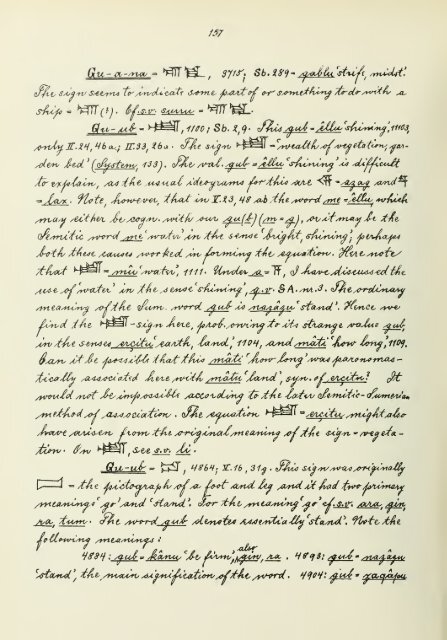 157
Gu-a-na = 𒄘𒀀𒈾, 3715; Sb. 289 = qablu 'strife, midst'.
The sign seems to indicate some part of or something to do with a
ship = (?). Cf. s.v. surru =
Gu-ub = , 1100; Sb. 2, 9. This gub = êllu 'shining', 1103,
only II. 24, 46a.; II. 33, 26a. The sign = 'wealth of vegetation, gar-
den bed' (System, 133). The val. gub = êllu 'shining' is difficult
to explain, as the usual ideograms for this are = azag and
= lax. Note, however, that in V. 23, 48 ab the word me = 'ellu, which
may either be cogn. with our gu(b) (m = g), or it may be the
Semitic word me 'water' in the sense 'bright, shining'; perhaps
both these causes worked in forming the equation. Here note
that = mêu 'water', 1111. Under a = 𒀀, I have discussed the
use of 'water' in the sense 'shining', q.v. SA. nr. 3. The ordinary
meaning of the Sum. word gub is nazâzu 'stand'. Hence we
find the -sign here, prob. owing to its strange value gub,
in the senses erçitu 'earth, land', 1104, and mâti 'how long', 1109.
Can it be possible that this mâti 'how long' was paronomas-
tically associated here with mâtu 'land', syn. of erçitu? It
would not be impossible according to the later Semitic-Sumerian
method of association. The equation = erçitu might also
have arisen from the original meaning of the sign = vegeta-
tion. On , see s.v. li.
Gu-ub = 𒁺, 4864; V. 16, 31g. This sign was originally
= the pictograph of a foot and leg and it had two primary
meanings 'go' and 'stand'. For the meaning 'go' cf. s.v. ara, gin,
ra, tum. The word gub denotes essentially 'stand'. Note the
following meanings:
4884: gub = kânu 'be firm', also gin, ra. 4893: gub = nazâzu
'stand', the main signification of the word. 4904: gub = zaqâpu